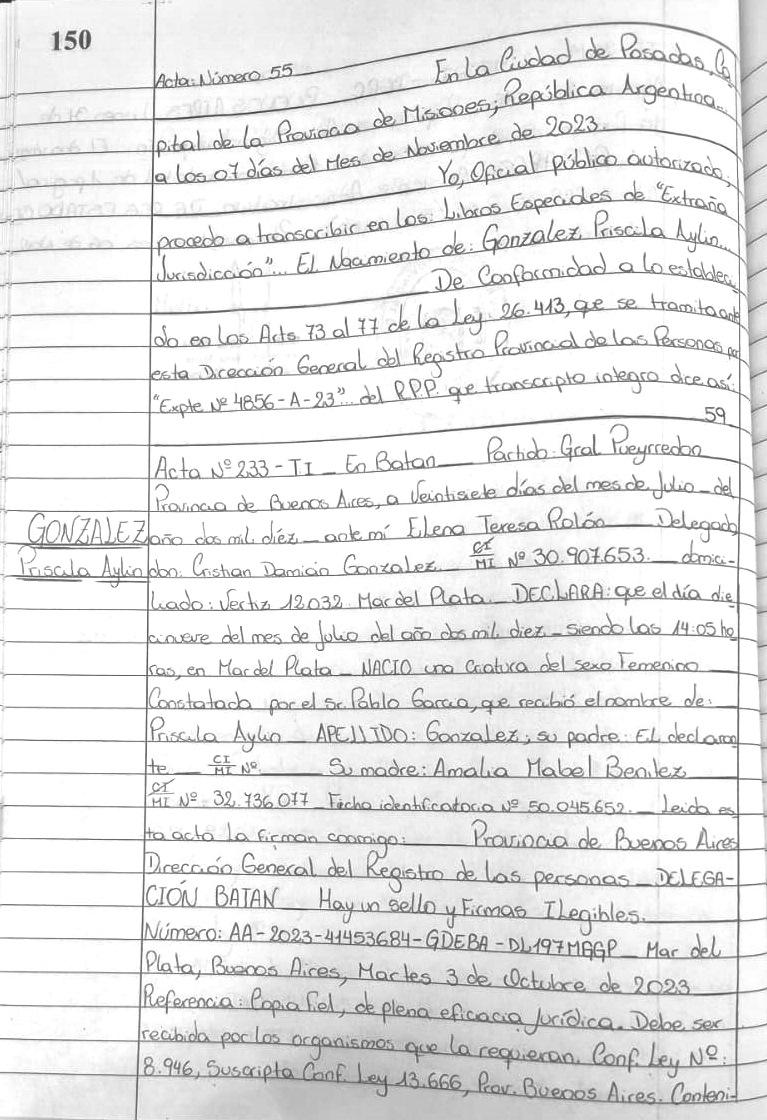 150
Acta: Número 55 En la Ciudad de Posadas, Ca
pital de la Provincia de Misiones; República Argentina...
a los 07 días del Mes de Noviembre de 2023.
Yo, Oficial público autorizado,
procedo a transcribir en los: Libros Especiales de "Extraña
Jurisdicción"... El Nacimiento de: Gonzalez, Priscila Aylin...
De Conformidad a lo estableci
do en los Arts 73 al 77 de la Ley. 26.413, qe se tramita ante
esta Dirección General del Registro Provincial de las Personas por
"Expte Nº 4856-A-23". del R.P.P. qe transcripto integro dice así:
59
Acta Nº 233-TI En Batan Partido: Gral Pueyrredon
Provincia de Buenos Aires, a Veintisiete días del mes de Julio del
GONZALEZ
Priscila Aylin
año dos mil diéz ante mí Elena Teresa Rolón Delegado
don: Cristian Damián Gonzalez CI/MI Nº 30.907.653. domici-
liado: Vertiz 12032 Mar del Plata DECLARA: que el día die
cinueve del mes de Julio del año dos mil diez siendo las 14:05 ho
ras, en Mar del Plata NACIO una criatura del sexo Femenino
Constatado por el sr. Pablo Garcia, qe recibió el nombre de:
Priscila Aylin APELLIDO: Gonzalez; su padre: El declaran
te CI/MI Nº. Su madre: Amalia Mabel Benitez
CI/MI Nº 32.736.077 Ficha identificatoria Nº 50.045.652. Leida es
ta acta la firman conmigo: Provincia de Buenos Aires
Dirección General del Registro de las personas DELEGA-
CIÓN BATAN Hay un sello y Firmas Ilegibles.
Número: AA-2023-41453684-GDEBA-DL197MGGP Mar del
Plata, Buenos Aires, Martes 3 de Octubre de 2023
Referencia: Copia fiel, de plena eficacia Jurídica. Debe ser
recibida por los organismos que la requieran. Conf. Ley Nº:
8.946, Suscripta Conf. Ley 13.666, Prov. Buenos Aires. Conteni-